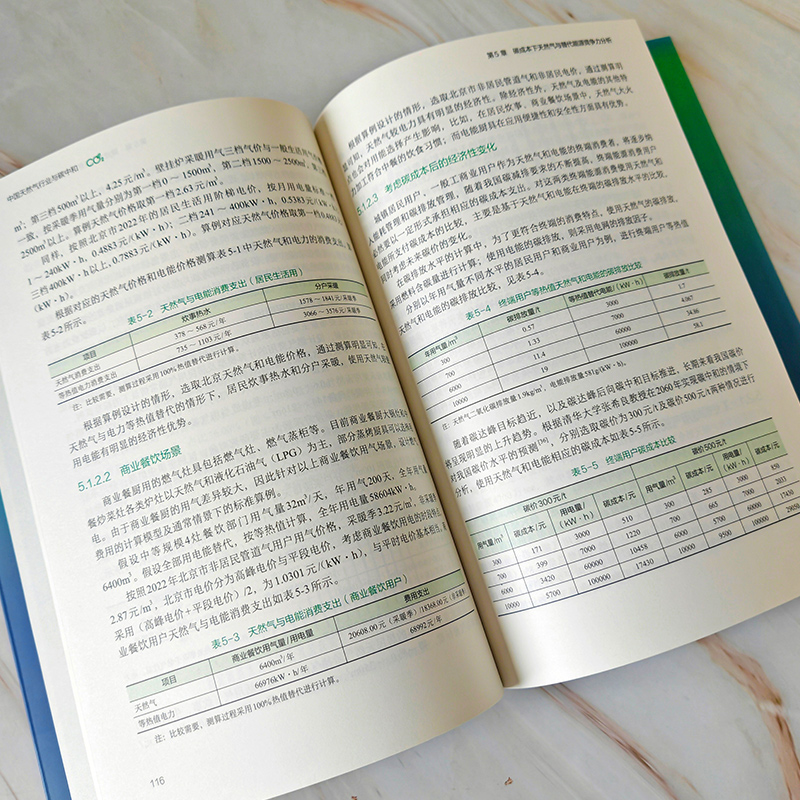 中国天然气行业与碳中和
㎥，第三档500㎥以上，4.25元/㎥。壁挂炉采暖用气三档气价与一般生活用气
一致，按采暖季用气量分别为第一档0～1500㎥，第二档1500～2500㎥，第三档
2500㎥以上。算例天然气价格取第一档2.63元/㎥。
同样，按照北京市2022年的居民生活用阶梯电价，按月用电量标准
1～240kW·h，0.4883元/(kW·h)；二档241～400kW·h，0.5383元/(kW·h)；
三档400kW·h以上，0.7883元/(kW·h)。算例对应天然气价格取第一档0.4883
(kW·h)。
根据对应的天然气价格和电能价格测算表5-1中天然气和电力的消费支出，如
表5-2所示。
表5-2 天然气与电能消费支出（居民生活用）
项目 炊事热水 分户采暖
天然气消费支出 378～568元/年 1578～1841元/采暖季
等热值电力消费支出 735～1103元/年 3066～3576元/采暖季
注：比较需要，测算过程采用100%热值替代进行计算。
根据算例设计的情形，选取北京天然气和电能价格，通过测算明显可知，在
天然气与电力等热值替代的情形下，居民炊事热水和分户采暖，使用天然气较使
用电能有明显的经济性优势。
5.1.2.2 商业餐饮场景
商业餐厨用的燃气灶具包括燃气灶、燃气蒸柜等。目前商业餐厨大锅灶和中
餐炒菜灶各类炉灶以天然气和液化石油气（LPG）为主，部分蒸烤厨具可以选择
电。由于商业餐厨的用气差异较大，因此针对以上商业餐饮用气场景，设计燃气
费用的计算模型及通常情景下的标准算例。
假设中等规模4灶餐饮部门用气量32㎥/天，年用气200天，全年用气量
6400㎥。假设全部用电能替代，按等热值计算，全年用电量58604kW·h。
按照2022年北京市非居民管道气用户用气价格，采暖季3.22元/㎥，非采暖季
2.87元/㎥，北京市电价分为高峰电价与平段电价，考虑商业餐饮用电的时段特点
采用（高峰电价+平段电价）/2，为1.0301元/(kW·h)，与平时电价基本相当。商
业餐饮用户天然气与电能消费支出如表5-3所示。
表5-3 天然气与电能消费支出（商业餐饮用户）
项目 商业餐饮用气量/用电量 费用支出
天然气 6400㎥/年 20608.00元（采暖季）/18368.00元（非采暖季
等热值电力 66976kW·h/年 68992元/年
注：比较需要，测算过程采用100%热值替代进行计算。
116
第5章 碳成本下天然气与替代能源竞争力分析
根据算例设计的情形，选取北京市非居民管道气和非居民电价，通过测算明
显可知，天然气较电力具有明显的经济性。除经济性外，天然气及电能的其他特
点也会对用能选择产生影响，比如，在居民炊事、商业餐饮场景中，天然气大火
力加工符合中餐的饮食习惯；而电能厨具在应用便捷性和安全性方面具有优势。
5.1.2.3 考虑碳成本后的经济性变化
城镇居民用户、一般工商业用户作为天然气和电能的终端消费者，将逐步纳
入碳耗管理和碳排放管理，随着我国碳减排要求的不断提高，终端能源消费用户
必然要以一定形式承担相应的碳成本支出。对这两类终端能源消费使用天然气和
电能所支付碳成本的比较，主要是基于天然气和电能在终端的碳排放水平的比较，
同时考虑未来碳价的变化。
在碳排放水平的计算中，为了更符合终端的消费特点，使用天然气的碳排放，
采用燃料含碳量进行计算；使用电能的碳排放，则采用电网的排放因子。
分别以年用气量不同水平的居民用户和商业用户为例，进行终端用户等热值
天然气和电能的碳排放比较，见表5-4。
表5-4 终端用户等热值天然气和电能的碳排放比较
年用气量/㎥ 碳排放量/t 等热值替代电能/(kW·h) 碳排放量/t
300 0.57 3000 1.7
700 1.33 7000 4.067
6000 11.4 60000 34.86
10000 19 100000 58.1
注：天然气二氧化碳排放量1.9kg/㎥，电能排放量581g/(kW·h)。
随着碳达峰目标趋近，以及碳达峰后向碳中和目标推进，长期来看我国碳价
将呈现明显的上升趋势。根据清华大学张希良教授在2060年实现碳中和的情境下
对我国碳价水平的预测[36]，分别选取碳价为300元/t及碳价500元/t两种情况进行
分析，使用天然气和电能相应的碳成本如表5-5所示。
表5-5 终端用户碳成本比较
碳价300元/t 碳价500元/t
用气量/㎥ 碳成本/元 用电量/(kW·h) 碳成本/元 用气量/㎥ 碳成本/元 用电量/(kW·h) 碳成本/元
300 171 3000 510 300 285 3000 850
700 399 7000 1220 700 665 7000 2033
6000 3420 60000 10458 6000 5700 60000 17430
10000 5700 100000 17430 10000 9500 100000 29050